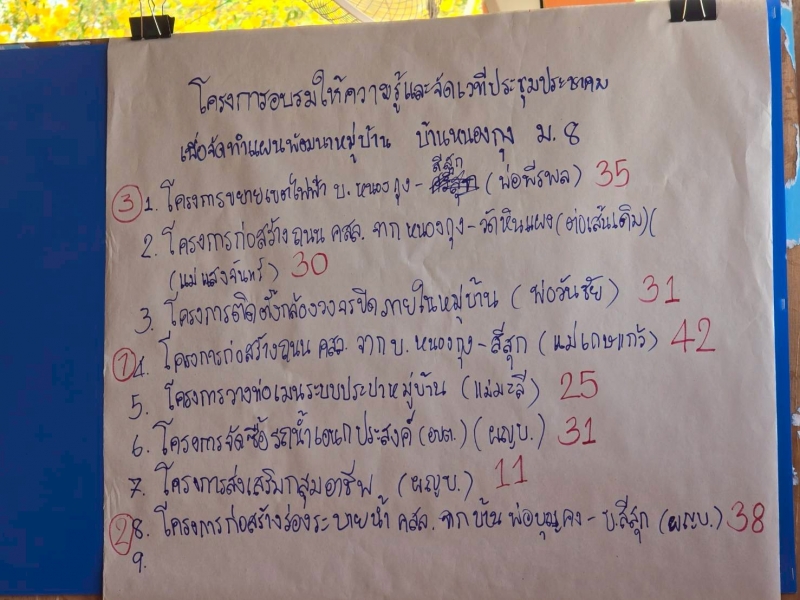 โครงการอบรมให้ความรู้และจัดเวทีประชุมประชาคม
เพื่อจัดทำแผนพัฒนาหมู่บ้าน บ้านหนองกุง ม.8
③ 1. โครงการขยายเขตไฟฟ้า บ.หนองกุง - สีสุก (พ่อพีรพล) 35
2. โครงการก่อสร้างถนน คสล. จากหนองกุง - วัดหินแผง (ต่อเส้นเดิม) (
(แม่แสงจันทร์) 30
3. โครงการติดตั้งกล้องวงจรปิดภายในหมู่บ้าน (พ่อวันชัย) 31
① 4. โครงการก่อสร้างถนน คสล. จาก บ.หนองกุง - สีสุก (แม่เกษแก้ว) 42
5. โครงการวางท่อเมนระบบประปาหมู่บ้าน (แม่มะลี) 25
6. โครงการจัดซื้อรถน้ำเอนกประสงค์ (อบต.) (ผญบ.) 31
7. โครงการส่งเสริมกลุ่มอาชีพ (ผญบ.) 11
② 8. โครงการก่อสร้างร่องระบายน้ำ คสล. จากบ้าน พ่อบุญคง - บ.สีสุก (ผญบ.) 38
9.